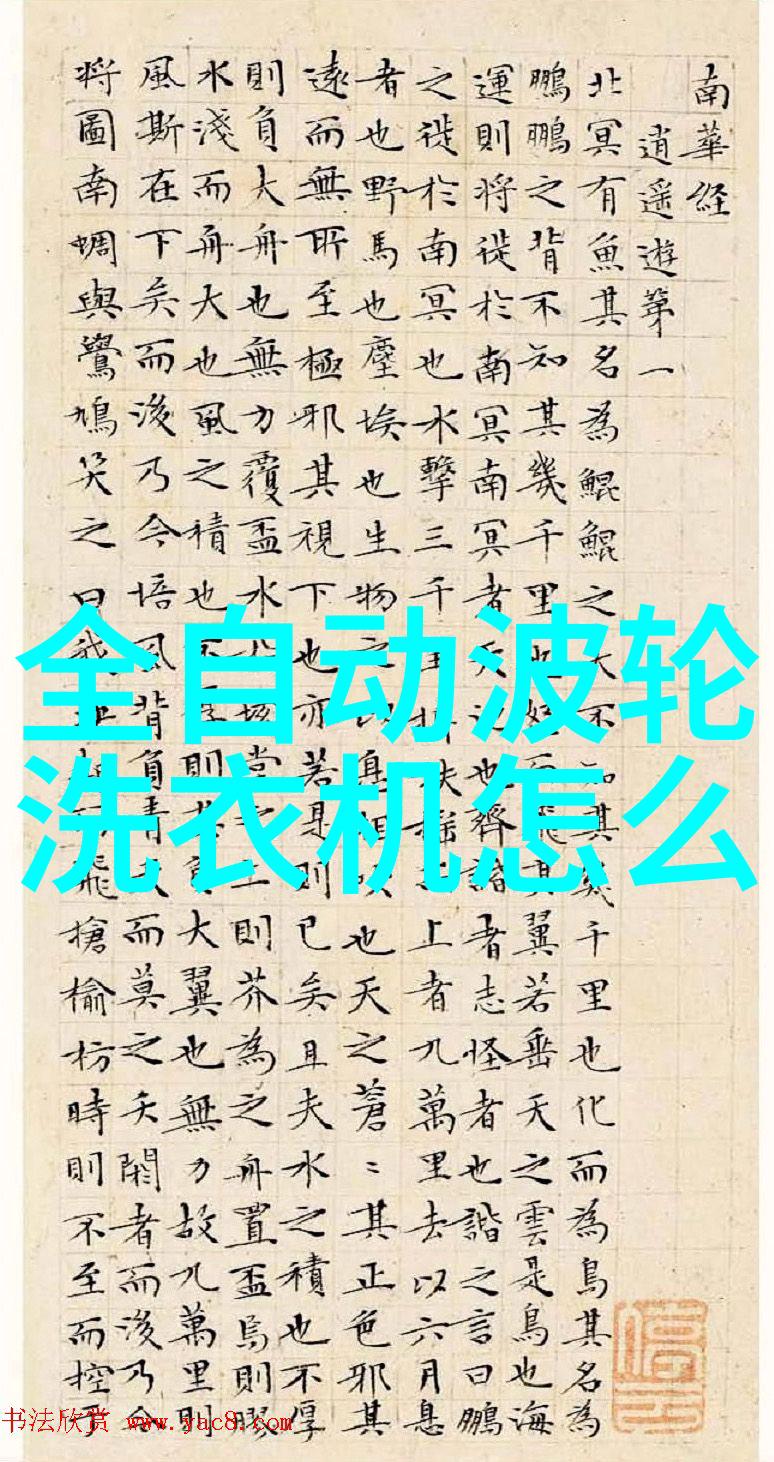 南華経
逍遥遊第一
北冥有魚其名為鯤鯤之大不知其幾千里也化而為鳥其名為
鵬鵬之背不知其幾千里也而飛其翼若垂天之雲是鳥也海
運則将徙於南冥南冥者天池也齊諧者志怪者也諧之言曰鵬
之徙於南冥也水擊三千里扶上者九萬里去以六月息
者也野馬也塵埃也生物之以息相吹也天之蒼〻其正色邪其
遠而無所至極邪其視下也亦若是則已矣且夫水之積也不厚
則負大舟也無力覆盃水堂之上則芥為之舟置盃焉則膠
水淺而舟大也風之積也不則其負大翼也無力故九萬里則
風斯在下矣而後乃今培風背負青天而莫之夭閼者而後乃今
将圖南蜩與鷽鳩笑之曰我起飛槍榆枋時則不至而控於
全自动波轮
洗衣机怎么
书法欣赏 www.yac8.com